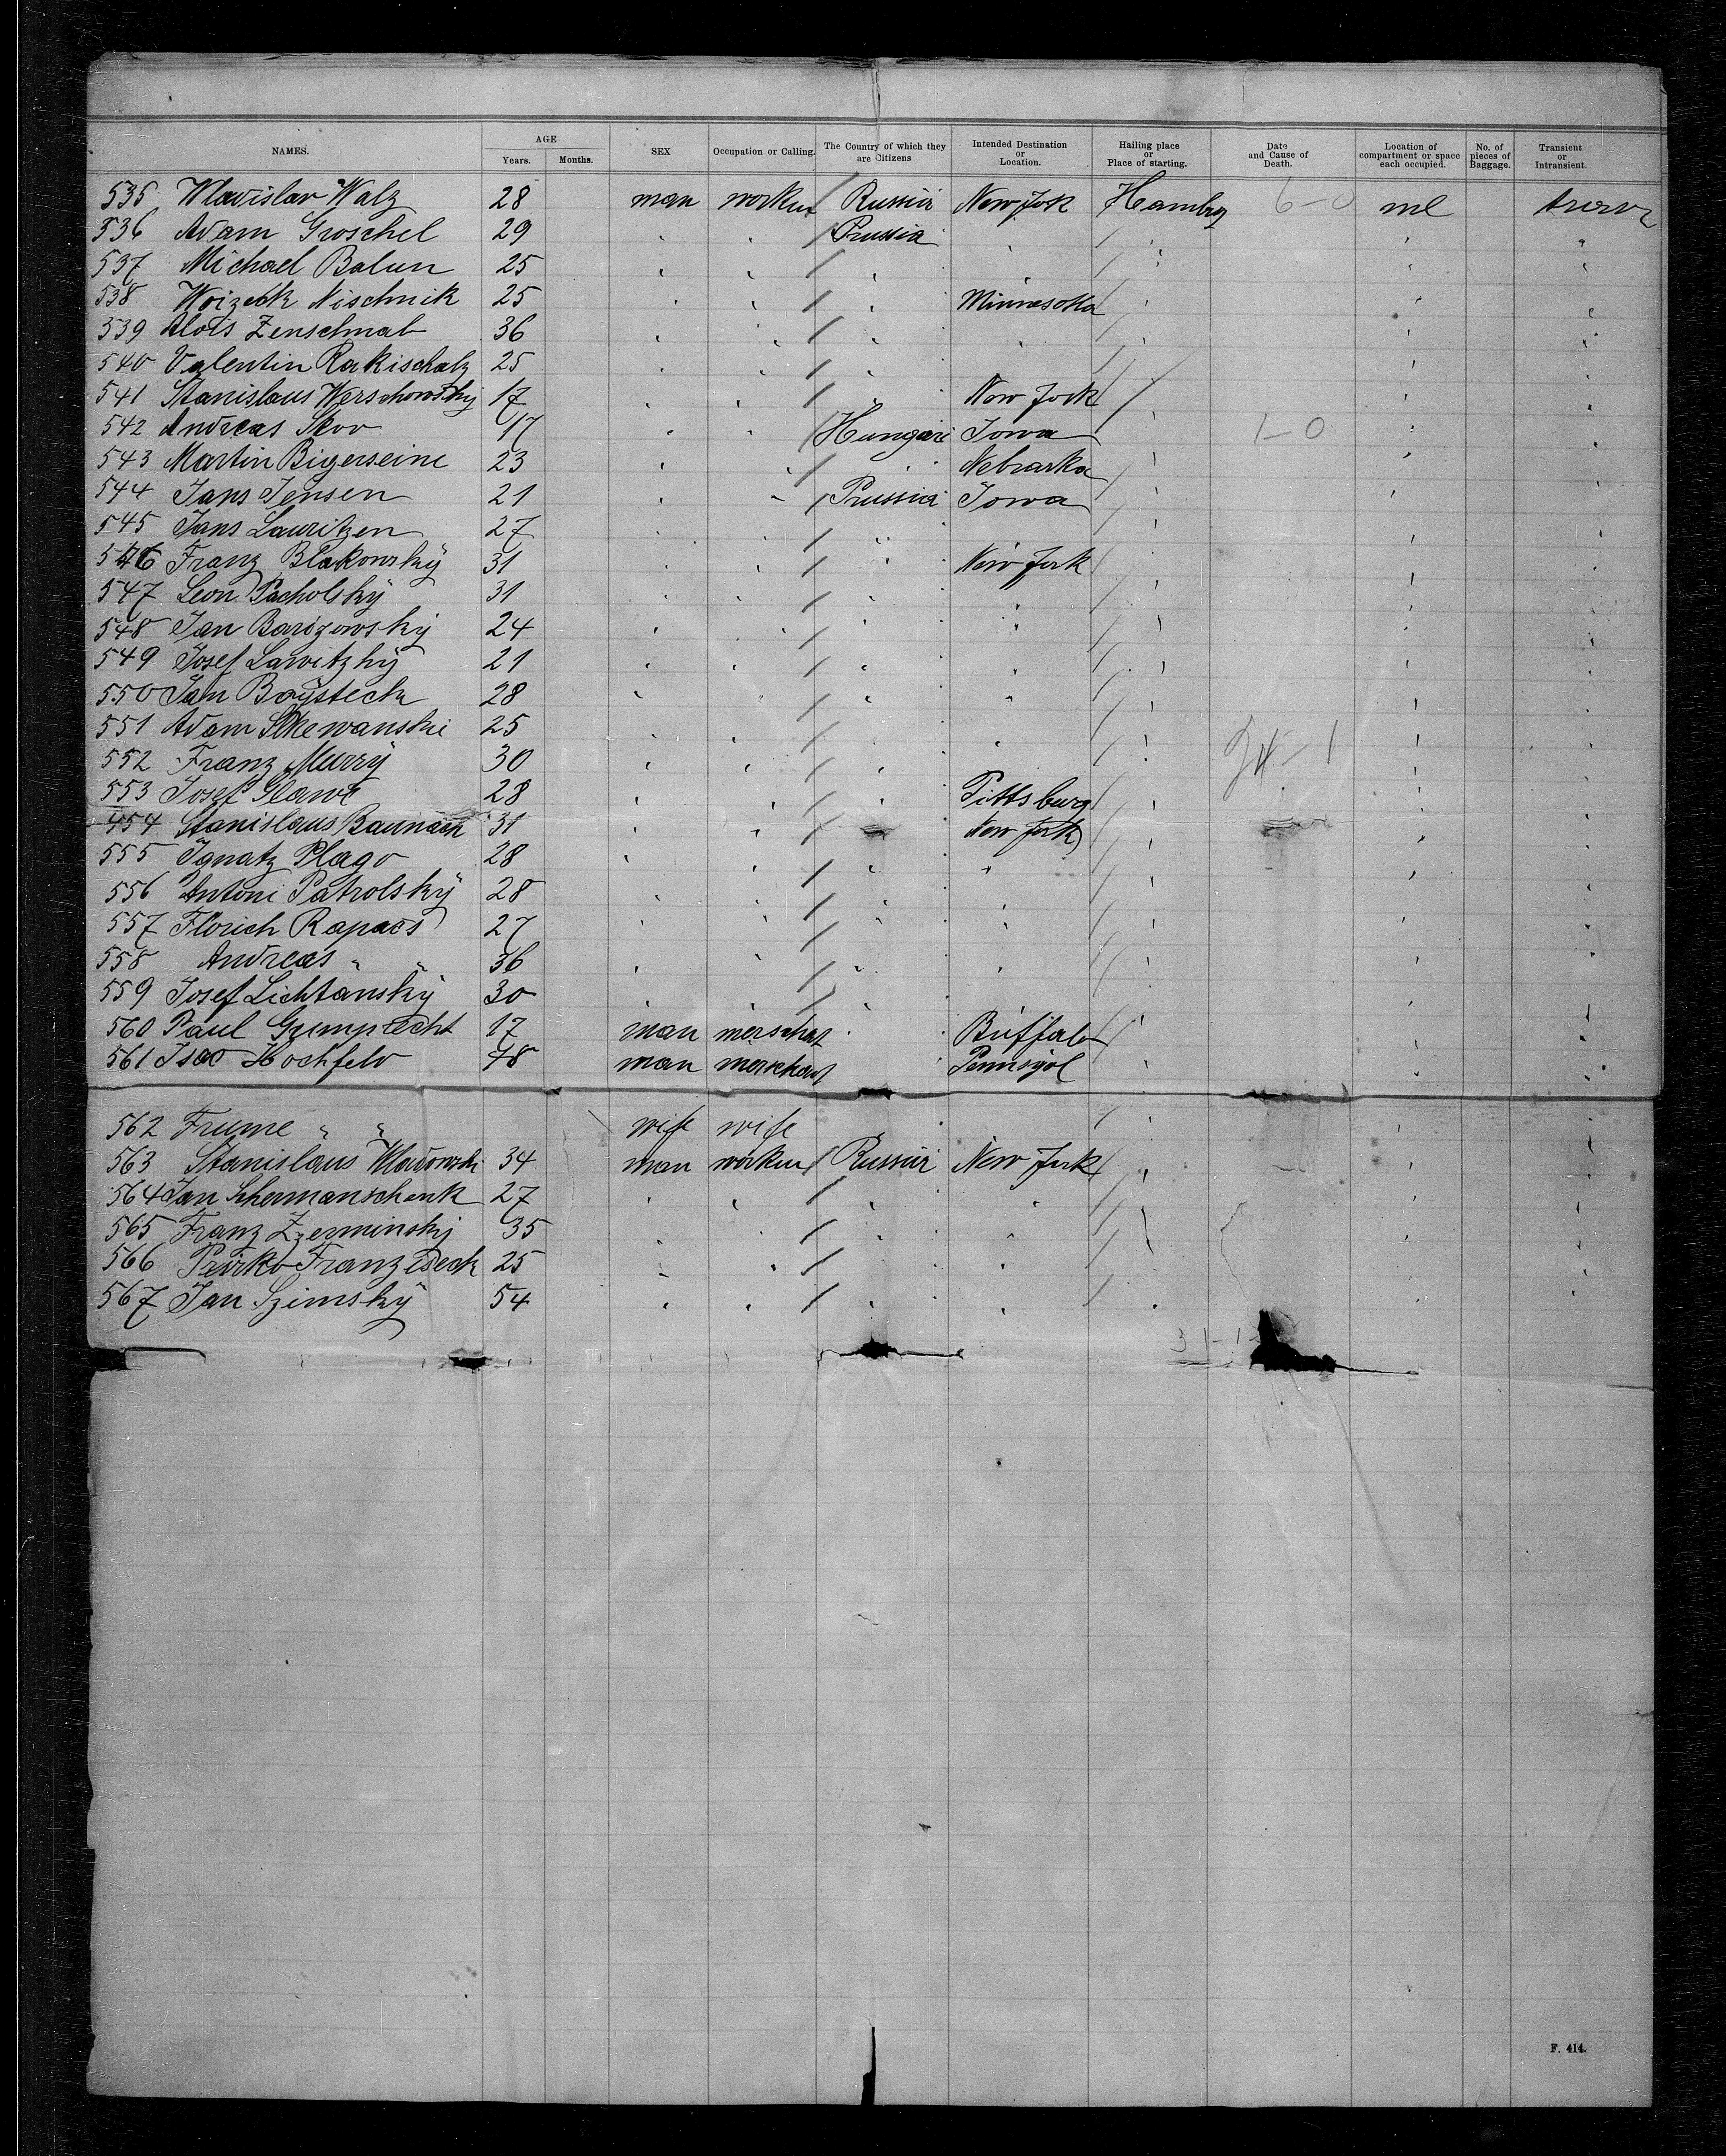 NAMES. AGE Years. Months. SEX Occupation or Calling. The Country of which they are Citizens Intended Destination or Location. Hailing place or Place of starting. Date and Cause of Death. Location of compartment or space each occupied. No. of pieces of Baggage. Transient or Intransient.
535 Wladislav Walz 28 man worker Russia New York Hambrg 6-0 ml
536 Adam Groschel 29 " " Prussia " " " "
537 Michael Balun 25 " " " " " " "
538 Woizeck Nischnik 25 " " " Minnesotta " " "
539 Alois Zenschmal 36 " " " " " "
540 Valentin Rakischalz 25 " " " " "
541 Stanislaus Werschowsky 17 " " " New York " "
542 Andreas Skov 17 " " Hungari Iowa " 1-0 " "
543 Martin Bigerseine 23 " " " Nebraska " " "
544 Jans Jensen 21 " " Prussia Iowa " " "
545 Jans Lauritzen 27 " " " " "
546 Franz Blakowsky 31 " " " New York " " "
547 Leon Pacholsky 31 " " " " " " "
548 Jan Barozowsky 24 " " " " " " "
549 Josef Lawitzky 21 " " " " " " "
550 Jan Boysteck 28 " " " " " "
551 Adam 25 " " " " " "
552 Franz Murry 30 " " " " " 24-1 " "
553 Josef Glawe 28 " " " Pittsburg " " "
554 Stanislaus Baunach 31 " " " New York " " "
555 Ignatz Plago 28 " " " " " "
556 Antoni Patrolsky 28 " " " " " " "
557 Florich Rapacs 27 " " " " " " "
558 Andreas " " 36 " " " " " " "
559 Josef Lichtansky 30 " " " " "
560 Paul Gumprecht 17 man merschat " Buffalo " " "
561 Isac Hochfeld 48 man merschant Pennsyol " " "
562 Frume " " wife wife " "
563 Stanislaus 34 man worker Russia New York " " "
564 Jan Schermanschenk 27 " " " " " " "
565 Franz Zzerminsky 35 " " " " " " "
566 Peirko Franzedeck 25 " " " " "
567 Jan Szimsky 54 " " " " " " "
31-1
F. 414.